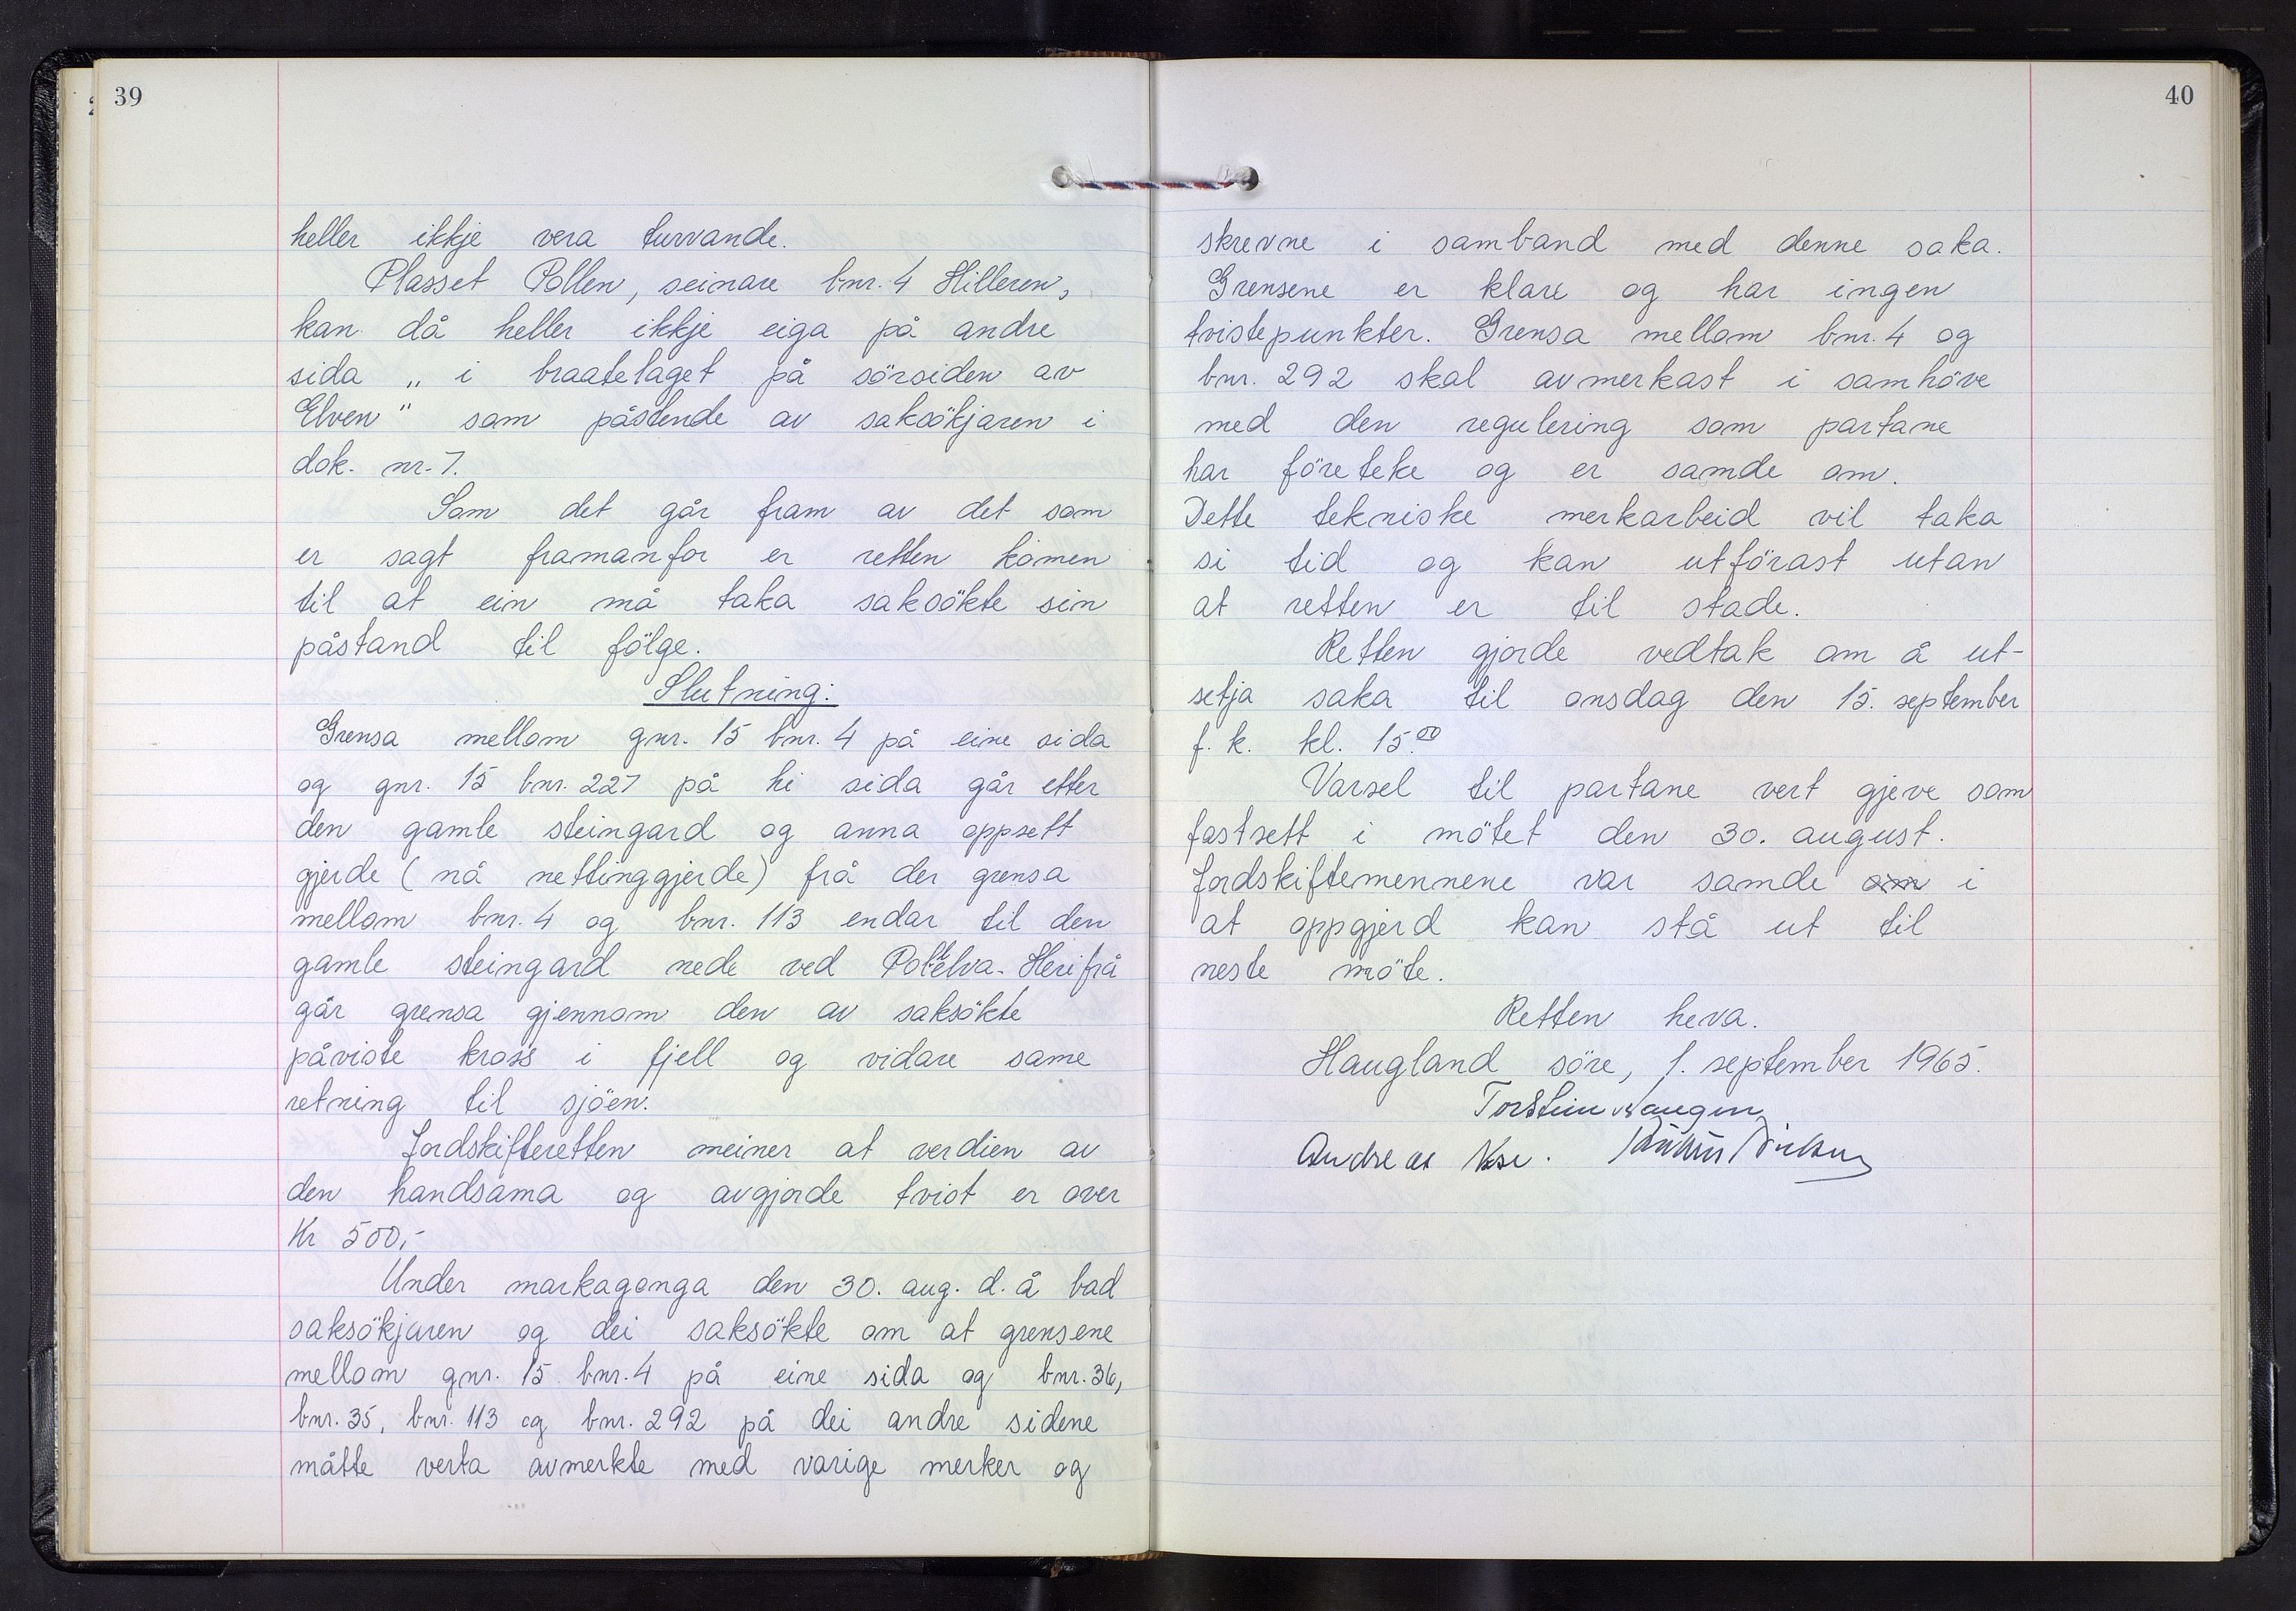 39
heller ikkje vera turvande.
Plasset Pollen, seinare bnr. 4 Hilleren,
kan då heller ikkje eiga på andre
sida „ i braatelaget på sörsiden av
Elven" som påstende av saksökjaren i
dok. nr. 7.
Som det går fram av det som
er sagt framanfor er retten komen
til at ein må taka saksökte sin
påstand til fölge.
Slutning:
Grensa mellom gnr. 15 bnr. 4 på eine sida
og gnr. 15 bnr. 227 på hi sida går etter
den gamle steingard og anna oppsett
gjerde (nå nettinggjerde) frå der grensa
mellom bnr. 4 og bnr. 113 endar til den
gamle steingard nede ved Pollelva. Herifrå
går grensa gjennom den av saksökte
påviste kross i fjell og vidare same
retning til sjöen.
Jordskifteretten meiner at verdien av
den handsama og avgjorde tvist er over
Kr 500,-
Under markagonga den 30. aug. d. å bad
saksökjaren og dei saksökte om at grensene
mellom gnr. 15 bnr. 4 på eine sida og bnr. 36,
bnr. 35, bnr. 113 og bnr. 292 på dei andre sidene
måtte verta avmerkte med varige merker og
40
skrevne i samband med denne saka.
Grensene er klare og har ingen
tvistepunkter. Grensa mellom bnr. 4 og
bnr. 292 skal avmerkast i samhöve
med den regulering som partane
har företeke og er samde om.
Dette tekniske merkarbeid vil taka
si tid og kan utförast utan
at retten er til stade.
Retten gjorde vedtak om å ut-
setja saka til onsdag den 15. september
f. k. kl. 15.00
Varsel til partane vert gjeve som
fastsett i mötet den 30. august.
Jordskiftemennene var samde om i
at oppgjerd kan stå ut til
neste möte.
Retten heva.
Haugland söre, 1. september 1965.
Torstein Haugen
Andreas